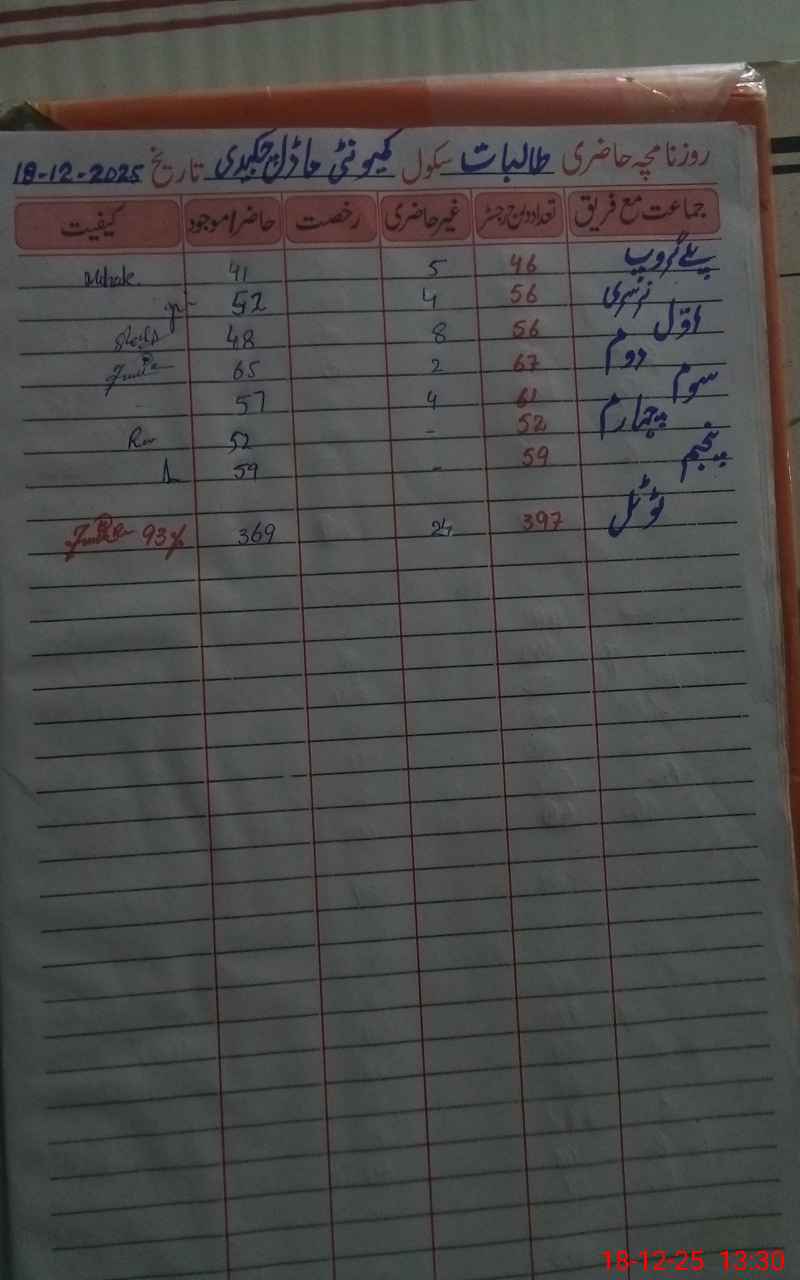 روزنامچہ حاضری طالبات سکول کمیونٹی ماڈل چکیدی تاریخ 18-12-2025
جماعت مع فریق تعداد درج رجسٹر غیر حاضری رخصت حاضر/موجود کیفیت
پلے گروپ 46 5 41
نرسری 56 4 52
اوّل 56 8 48
دوم 67 2 65
سوم 61 4 57
چہارم 52 - 52
پنجم 59 - 59
ٹوٹل 397 24 369 93%
18-12-25 13:30